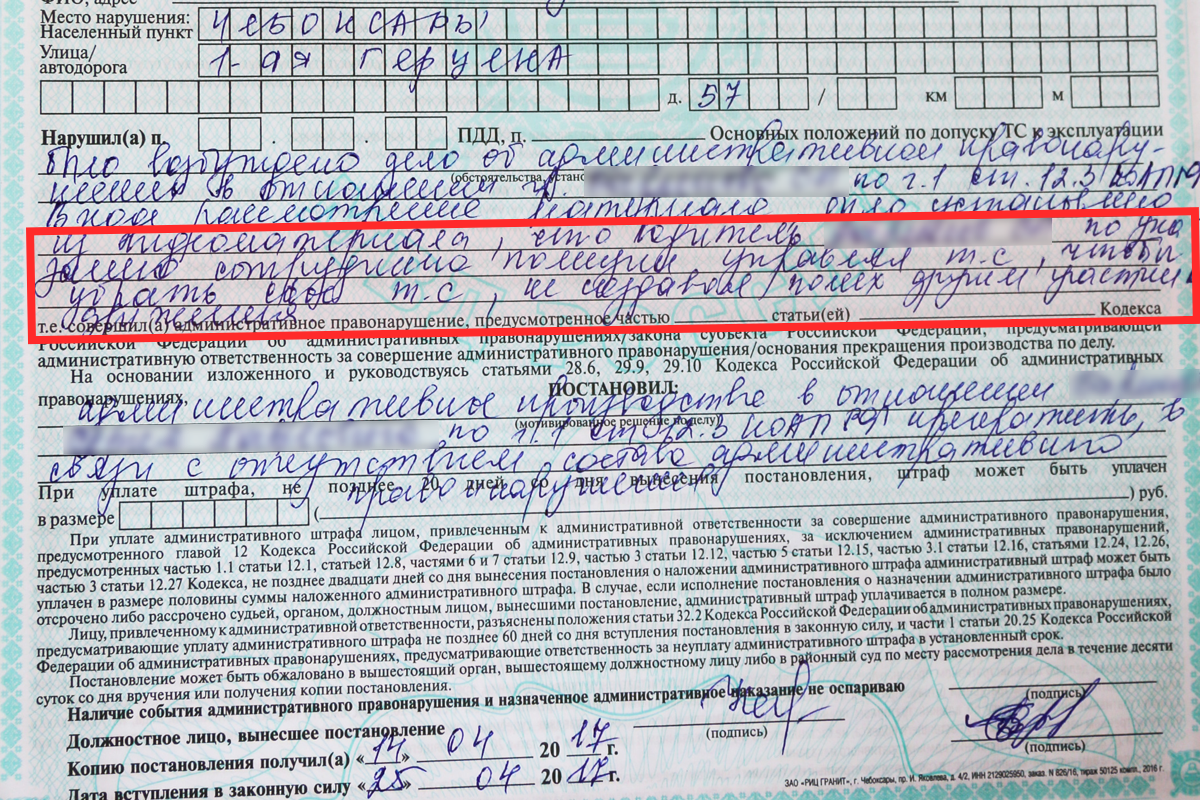 ФИО, адрес
Место нарушения:
Населенный пункт ЧЕБОКСАРЫ
Улица/
автодорога 1-ая Герцена
д. 57 / км м
Нарушил(а) п. . . ПДД, п. Основных положений по допуску ТС к эксплуатации
было возбуждено дело об административном правонару-
(обстоятельства, устано
шении в отношении гр. по ч.1 ст.12.3 КоАП РФ
В ходе рассмотрение материала было установлено
из видеоматериала, что водитель по ука
занию сотрудника полиции управлял т.с, чтобы
убрать свое т.с, не создавая помех другим участни
движения
т.е. совершил(а) административное правонарушение, предусмотренное частью статьи(ей) Кодекса
Российской Федерации об административных правонарушениях/закона субъекта Российской Федерации, предусматривающей
административную ответственность за совершение административного правонарушения/основания прекращения производства по делу.
На основании изложенного и руководствуясь статьями 28.6, 29.9, 29.10 Кодекса Российской Федерации об административных
правонарушениях, ПОСТАНОВИЛ:
административное производство в отношении
(мотивированное решение по делу)
по ч.1 ст.12.3 КОАП РФ прекратить, в
связи с отсутствием состава административного
правонарушения
При уплате штрафа, не позднее 20 дней со дня вынесения постановления, штраф может быть уплачен
в размере ( ) руб.
При уплате административного штрафа лицом, привлеченным к административной ответственности за совершение административного правонарушения,
предусмотренного главой 12 Кодекса Российской Федерации об административных правонарушениях, за исключением административных правонарушений,
предусмотренных частью 1.1 статьи 12.1, статьей 12.8, частями 6 и 7 статьи 12.9, частью 3 статьи 12.12, частью 5 статьи 12.15, частью 3.1 статьи 12.16, статьями 12.24, 12.26,
частью 3 статьи 12.27 Кодекса, не позднее двадцати дней со дня вынесения постановления о наложении административного штрафа административный штраф может быть
уплачен в размере половины суммы наложенного административного штрафа. В случае, если исполнение постановления о назначении административного штрафа было
отсрочено либо рассрочено судьей, органом, должностным лицом, вынесшими постановление, административный штраф уплачивается в полном размере.
Лицу, привлеченному к административной ответственности, разъяснены положения статьи 32.2 Кодекса Российской Федерации об административных правонарушениях,
предусматривающие уплату административного штрафа не позднее 60 дней со дня вступления постановления в законную силу, и части 1 статьи 20.25 Кодекса Российской
Федерации об административных правонарушениях, предусматривающие ответственность за неуплату административного штрафа в установленный срок.
Постановление может быть обжаловано в вышестоящий орган, вышестоящему должностному лицу либо в районный суд по месту рассмотрения дела в течение десяти
суток со дня вручения или получения копии постановления.
Наличие события административного правонарушения и назначенное административное наказание не оспариваю
(подпись)
Должностное лицо, вынесшее постановление
(подпись)
Копию постановления получил(а) «14» 04 2017 г.
(подпись)
Дата вступления в законную силу «25» 04 2017 г.
ЗАО «РИЦ ГРАНИТ», г. Чебоксары, пр. И. Яковлева, д. 4/2, ИНН 2129025950, заказ. N 826/16, тираж 50125 компл., 2016 г.